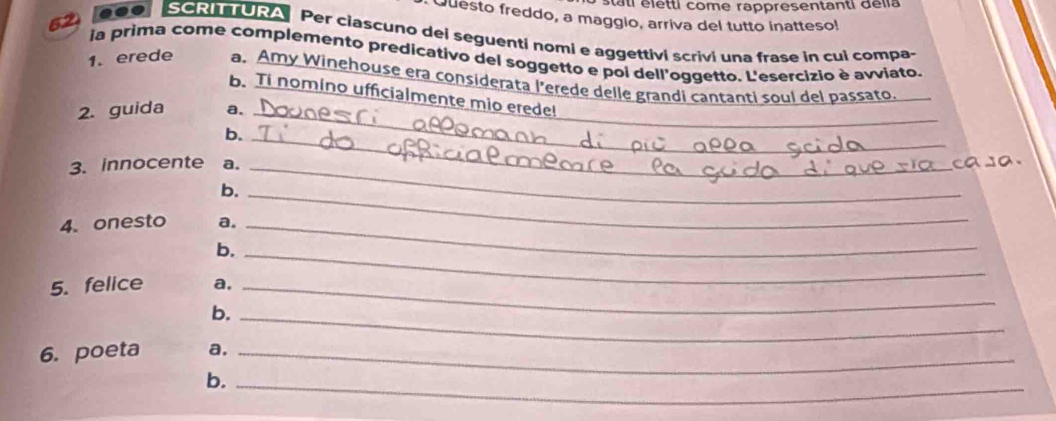 stati eletti come rappresentanti della
Questo freddo, a maggio, arriva del tutto inatteso!
62. SCRITTURA Per ciascuno dei seguenti nomi e aggettivi scrivi una frase in cui compa-
ia prima come complemento predicativo del soggetto e poi dell'oggetto. L'esercizio è avviato.
1. erede a. Amy Winehouse era considerata l'erede delle grandi cantanti soul del passato.
b. Ti nomino ufficialmente mio erede!
2. guida a. di più alla gcida
b. Ti do la guida di questa casa.
3. innocente a.
b.
4. onesto a.
b.
5. felice a.
b.
6. poeta a.
b.